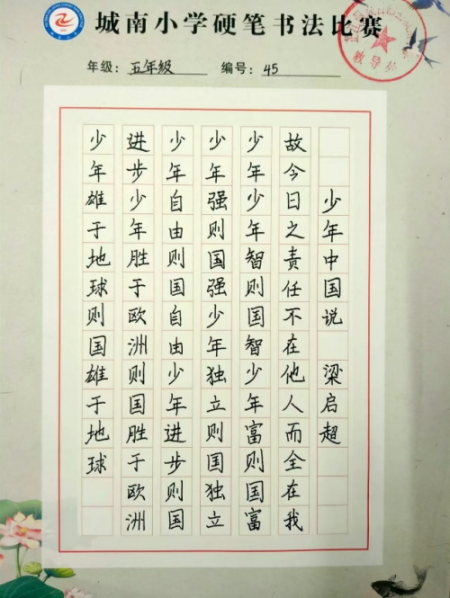 城南小学硬笔书法比赛
年级：五年级 编号：45
少年中国说 梁启超
故今日之责任不在他人而全在我
少年少年智则国智少年富则国富
少年强则国强少年独立则国独立
少年自由则国自由少年进步则国
进步少年胜于欧洲则国胜于欧洲
少年雄于地球则国雄于地球
教导处